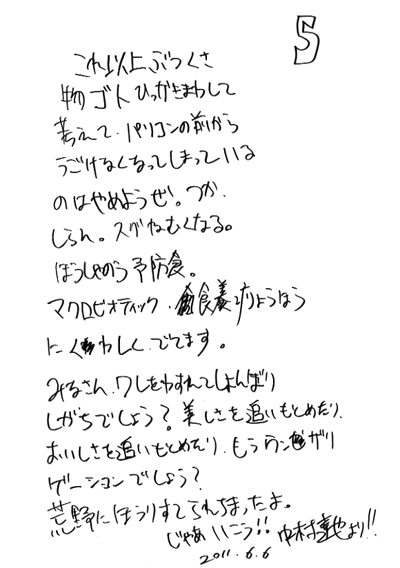 5
これ以上ぶつくさ
物ゴトひっかきまわして
考えて、パソコンの前から
うごけなくなってしまっている
のはやめようぜ。つか、
しらん。スグねむくなる。
ほうしゃのう予防食。
マクロビオティック、食養りょうほう
にくわしくでてます。
みなさん、ワレをわすれてしょんぼり
しがちでしょう？美しさを追いもとめたり、
おいしさを追いもとめたり、もうウンザリ
ゲーションでしょう？
荒野にほうりすてられちまったよ。
じゃあいこう!!中村達也より!!
2011.6.6